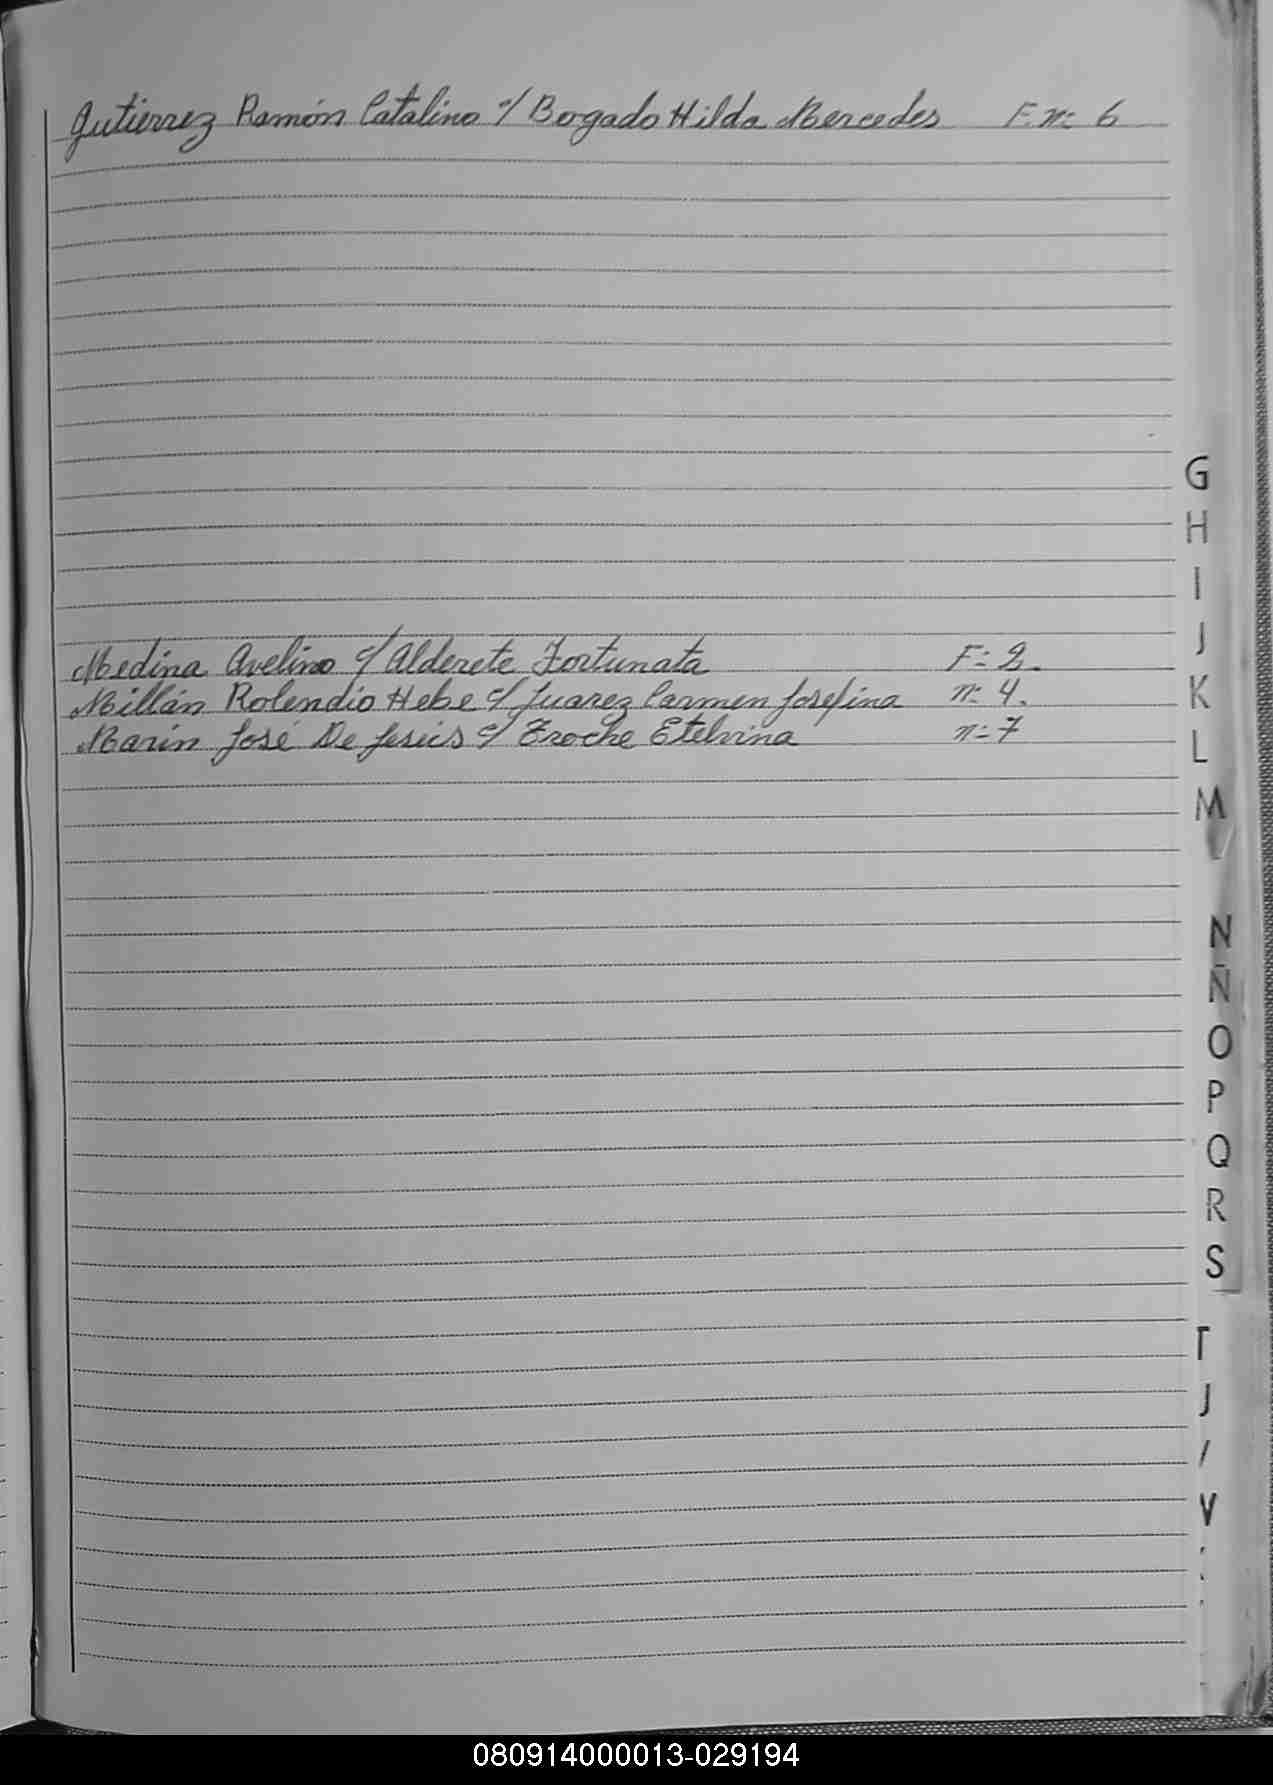 Gutierrez Ramón Catalino c/ Bogado Hilda Mercedes F. n: 6
G
H
I
J
Medina Avelino c/ Alderete Fortunata F: 2.
K
Millán Rolendio Hebe c/ Juarez Carmen Josefina n: 4.
Marin José De Jesús c/ Troche Etelvina n: 7
L
M
N
Ñ
O
P
Q
R
S
T
J
/
V
080914000013-029194